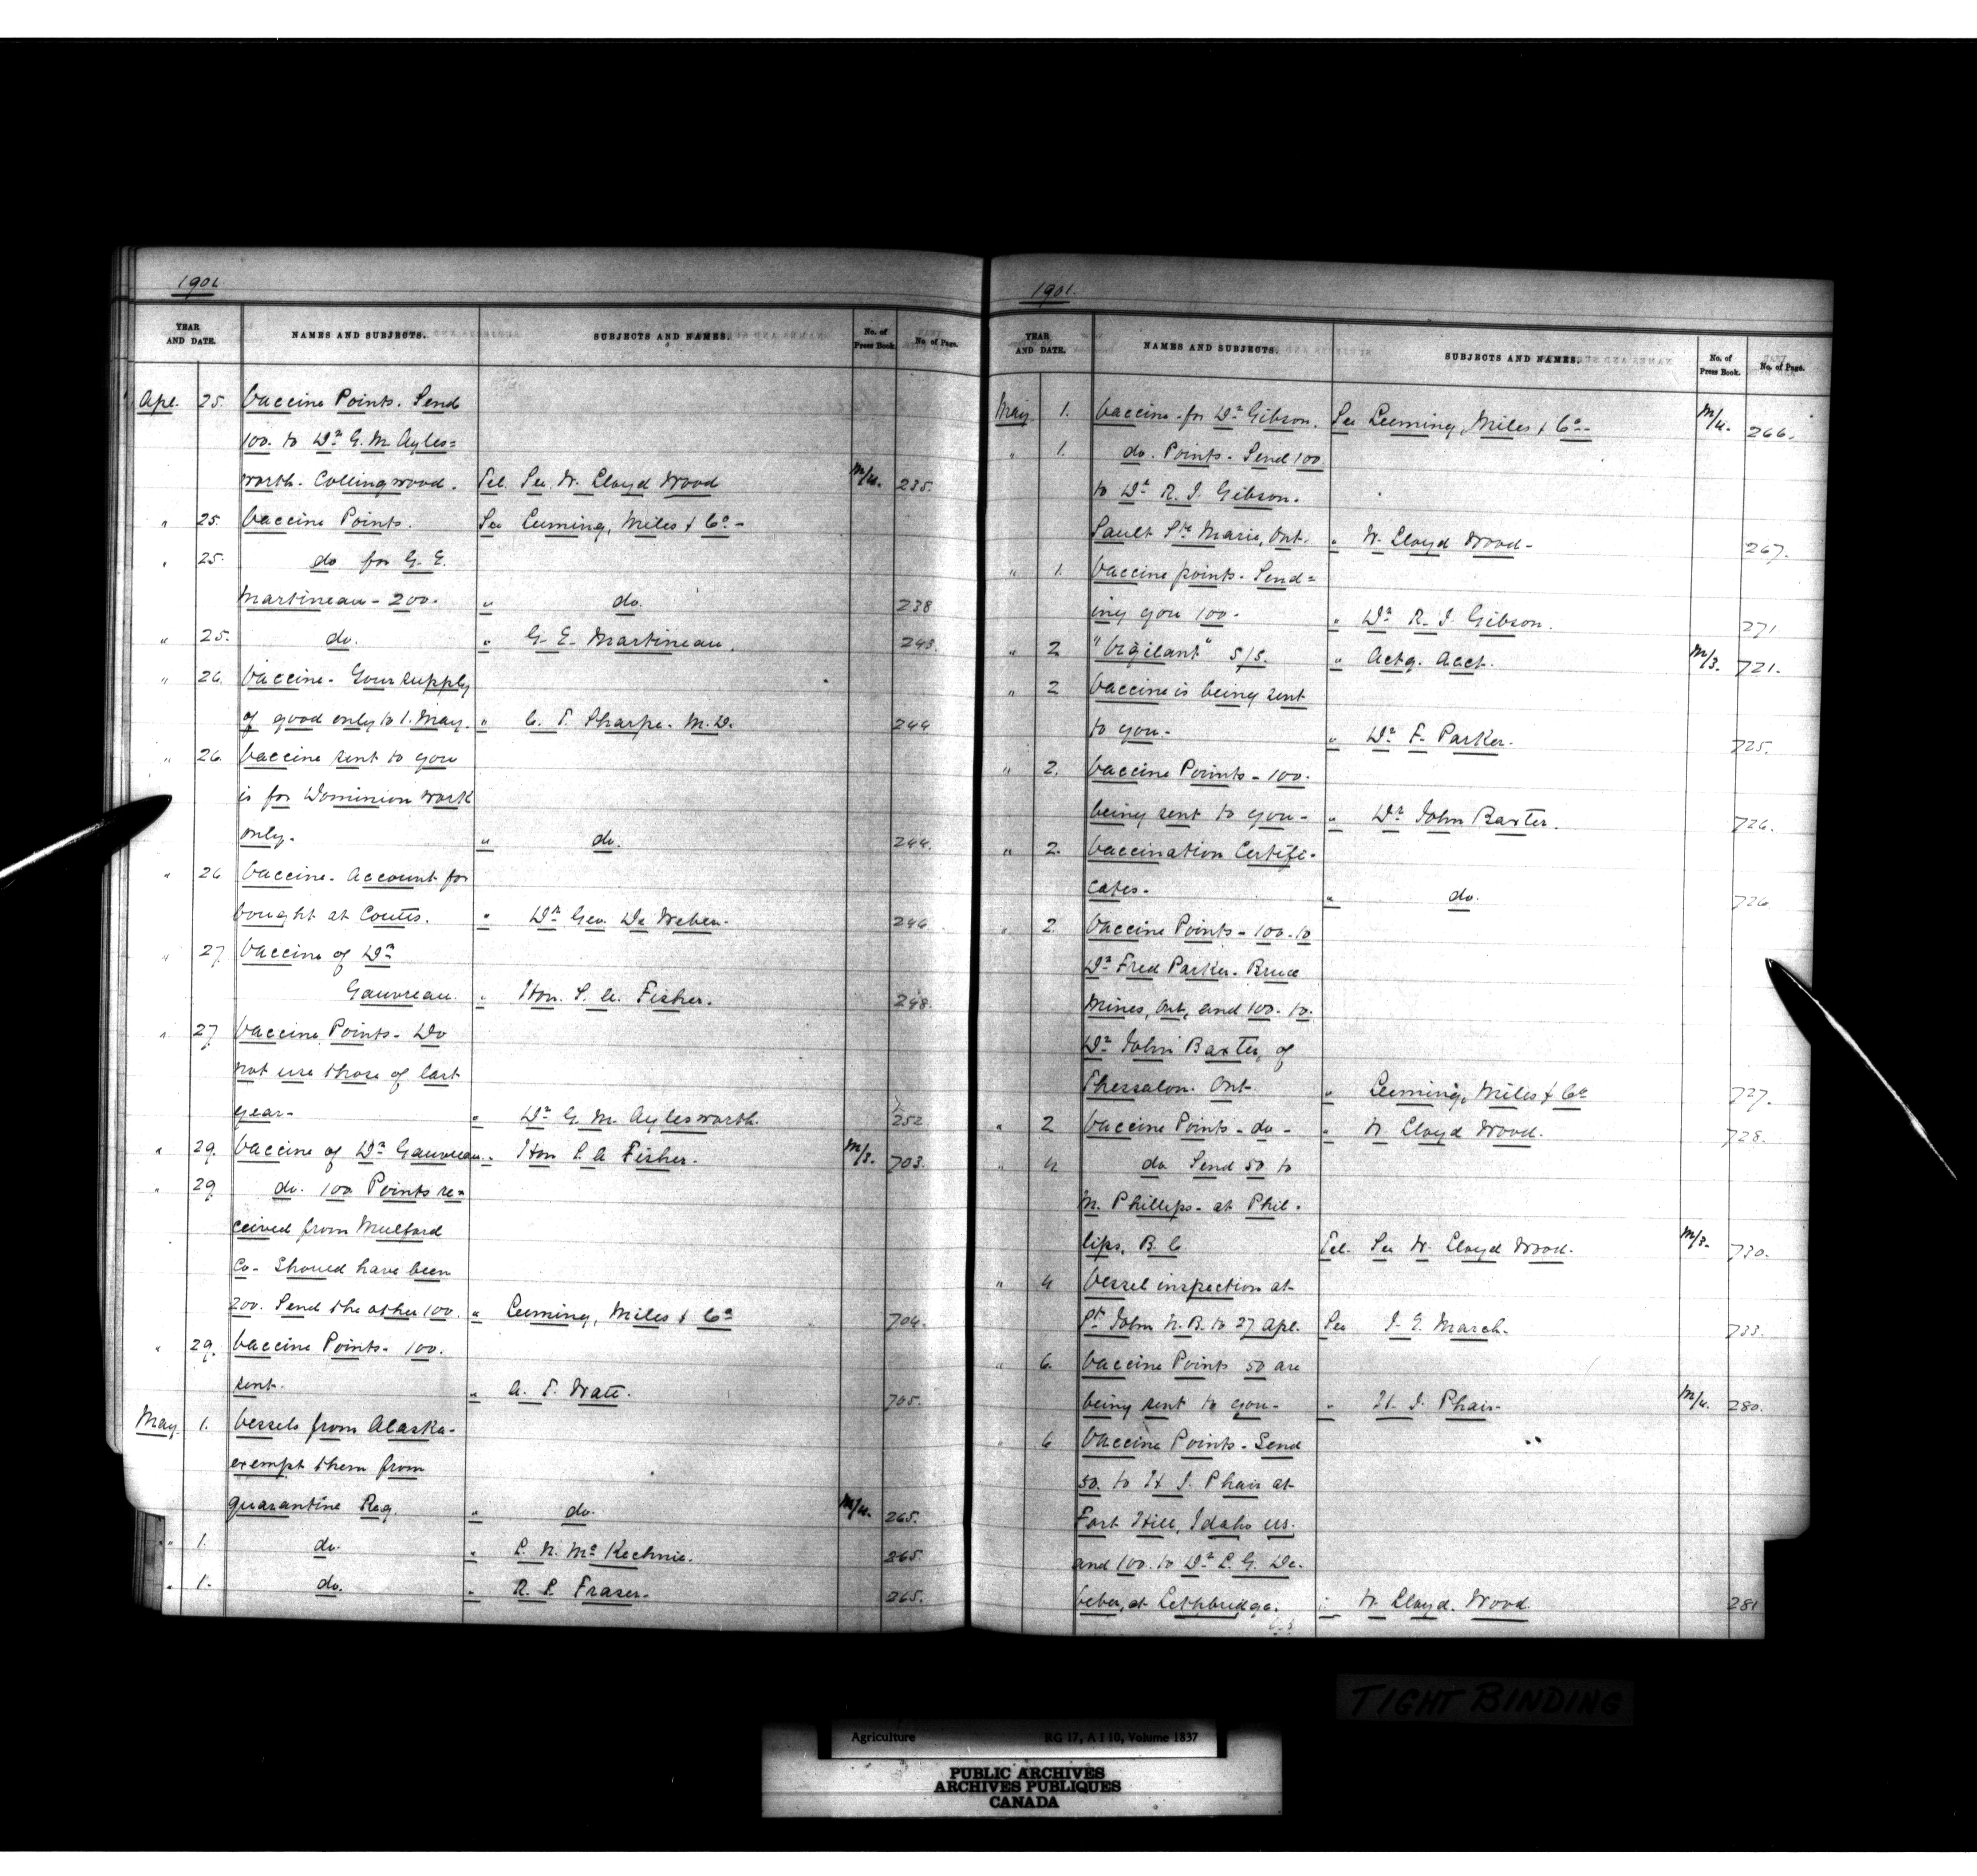 1901.
YEAR AND DATE. NAMES AND SUBJECTS. SUBJECTS AND NAMES. No. of Press Book. No. of Page.
Apl. 25. Vaccine Points. Send
100. to Dr. G. M. Ayles=
worth. Collingwood. Tel. See W. Lloyd Wood M/4. 235.
" 25. Vaccine Points. See Leeming, Miles & Co. -
" 25. do for G. E.
Martineau - 200. " do. 238
" 25. do. " G. E. Martineau. 243.
" 26. Vaccine - Your supply
of good only to 1. May. " C. T. Sharpe. M. D. 244
" 26. Vaccine sent to you
is for Dominion work
only. " do. 244.
" 26 Vaccine - Account for
bought at Coutts. " Dr. Geo. De Weber. 246
" 27 Vaccine of Dr.
Gauvreau. " Hon. S. A. Fisher. 248.
" 27 Vaccine Points - Do
not use those of last
year - " Dr. G. M. Aylesworth. 252
" 29. Vaccine of Dr. Gauvreau. " Hon S. A Fisher. M/3. 703.
" 29 do. 100 Points re=
ceived from Mulford
Co - Should have been
200. Send the other 100. " Leeming, Miles & Co. 704.
" 29. Vaccine Points - 100.
sent. " A. T. Watt. 705.
May. 1. Vessels from Alaska -
exempt them from
quarantine Reg. " do. M/4. 265.
" 1. do. " L. N. McKechnie. 265
" 1. do. " R. L. Fraser. 265.
1901.
YEAR AND DATE. NAMES AND SUBJECTS. SUBJECTS AND NAMES. No. of Press Book. No. of Page.
May 1. Vaccine - for Dr. Gibson. See Leeming, Miles & Co. - M/4. 266.
" 1. do. Points - Send 100
to Dr. R. J. Gibson.
Sault Ste Marie, Ont. " W. Lloyd Wood - 267.
" 1. Vaccine points - Send=
ing you 100 - " Dr. R. J. Gibson. 271
" 2. "Vigilant" S/S. " Actg. Acct. M/3. 721.
" 2 Vaccine is being sent
to you - " Dr. F. Parker. 725.
" 2. Vaccine Points - 100.
being sent to you - " Dr. John Baxter. 726.
" 2. Vaccination Certifi-
cates - " do. 726
" 2. Vaccine Points - 100. to
Dr. Fred Parker. Bruce
Mines, Ont, and 100. to.
Dr. John Baxter, of
Thessalon. Ont. " Leeming, Miles & Co. 727.
" 2 Vaccine Points - do - " W. Lloyd Wood. 728.
" 4 do Send 50 to
M. Phillips - at Phil-
lips, B. C Tel. See W. Lloyd Wood. M/3. 730.
" 4 Vessel inspection at
St. John N. B. to 27 Apl. See J. E. March. 733.
" 6. Vaccine Points 50 are
being sent to you - " H. J. Phair - M/4. 280.
" 6 Vaccine Points - Send
50. to H J. Phair at
Fort Hill, Idaho US.
and 100. to Dr. L. G. De
Veber, at Lethbridge. " W. Lloyd. Wood 281
TIGHT BINDING
Agriculture RG 17, A I 10, Volume 1837
PUBLIC ARCHIVES
ARCHIVES PUBLIQUES
CANADA